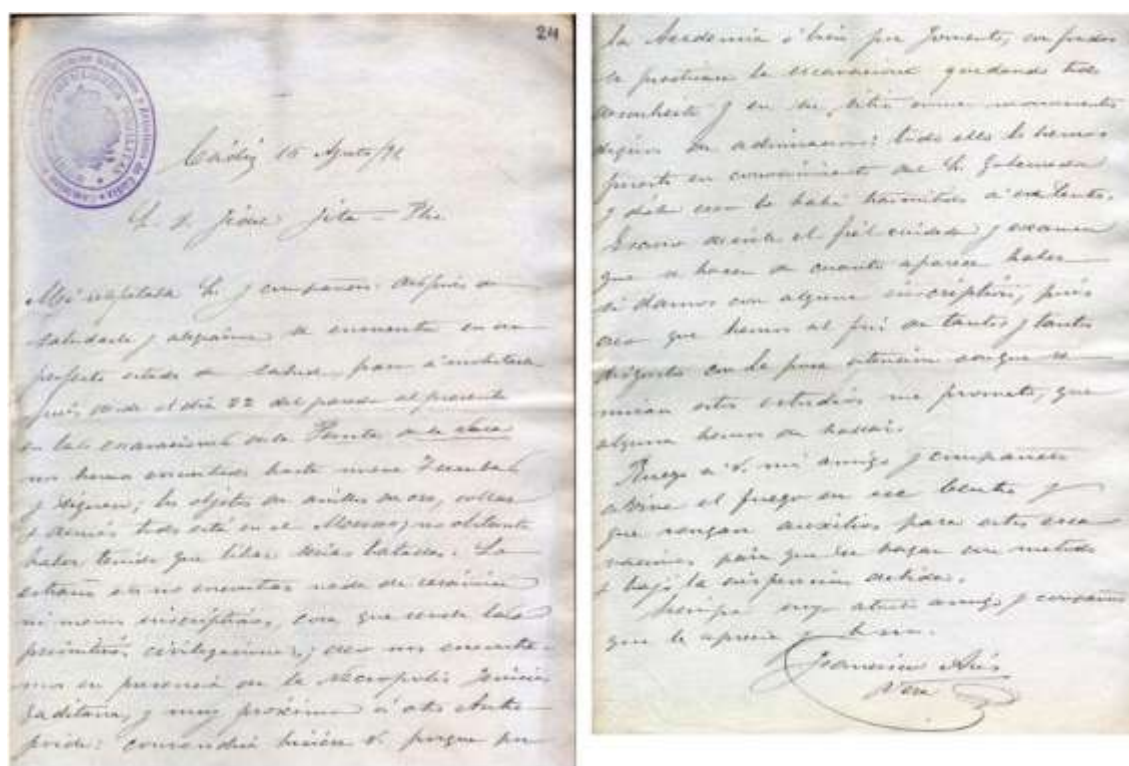 24
Cádiz 15 Agosto/92
Mi respetable Sr. y compañero: después de
saludarle y alegrarme se encuentre en un
perfecto estado de salud, paso a molestarle
pués desde el día 22 del pasado al presente
en las excavaciones de la Punta de la Vaca
nos hemos encontrado hasta nueve Tumbas
y siguen; los objetos de anillos de oro, collar
y demás todo está en el Museo; no obstante
haber tenido que librar batallas. Lo
extraño es no encontrar nada de cerámica
ni menos inscripción, cosa que
primitivas civilizaciones; creo nos encontra-
mos en presencia de la Necrópolis Fenicia
Gaditana, y muy próximo a otro Antro-
poide: V. porque por
la Academia ó bien por Fomento, con fondos
se practicara la excavación quedando todo
descubierto y en su sitio como monumento
digno de admiración; todo ello lo hemos
puesto en conocimiento del Sr. Gobernador
y éste creo lo habrá trasmitido a ese Centro.
el fiel cuidado y examen
que se hacen de cuanto aparece haber
si damos con alguna inscripción, pués
creo que hemos al fin de tantos y tantos
disgustos con la poca atención aunque se
miran estos estudios me prometo, que
alguna hemos de hallar.
Ruego a V. mi amigo y compañero
avive el fuego en ese Centro y
que vengan auxilios para estas exca-
vaciones para que se hagan con metodo
y bajo la inspección debida.
Siempre suyo atento amigo y compañero
que le aprecia y b.s.m.
Francisco Asís
Vera